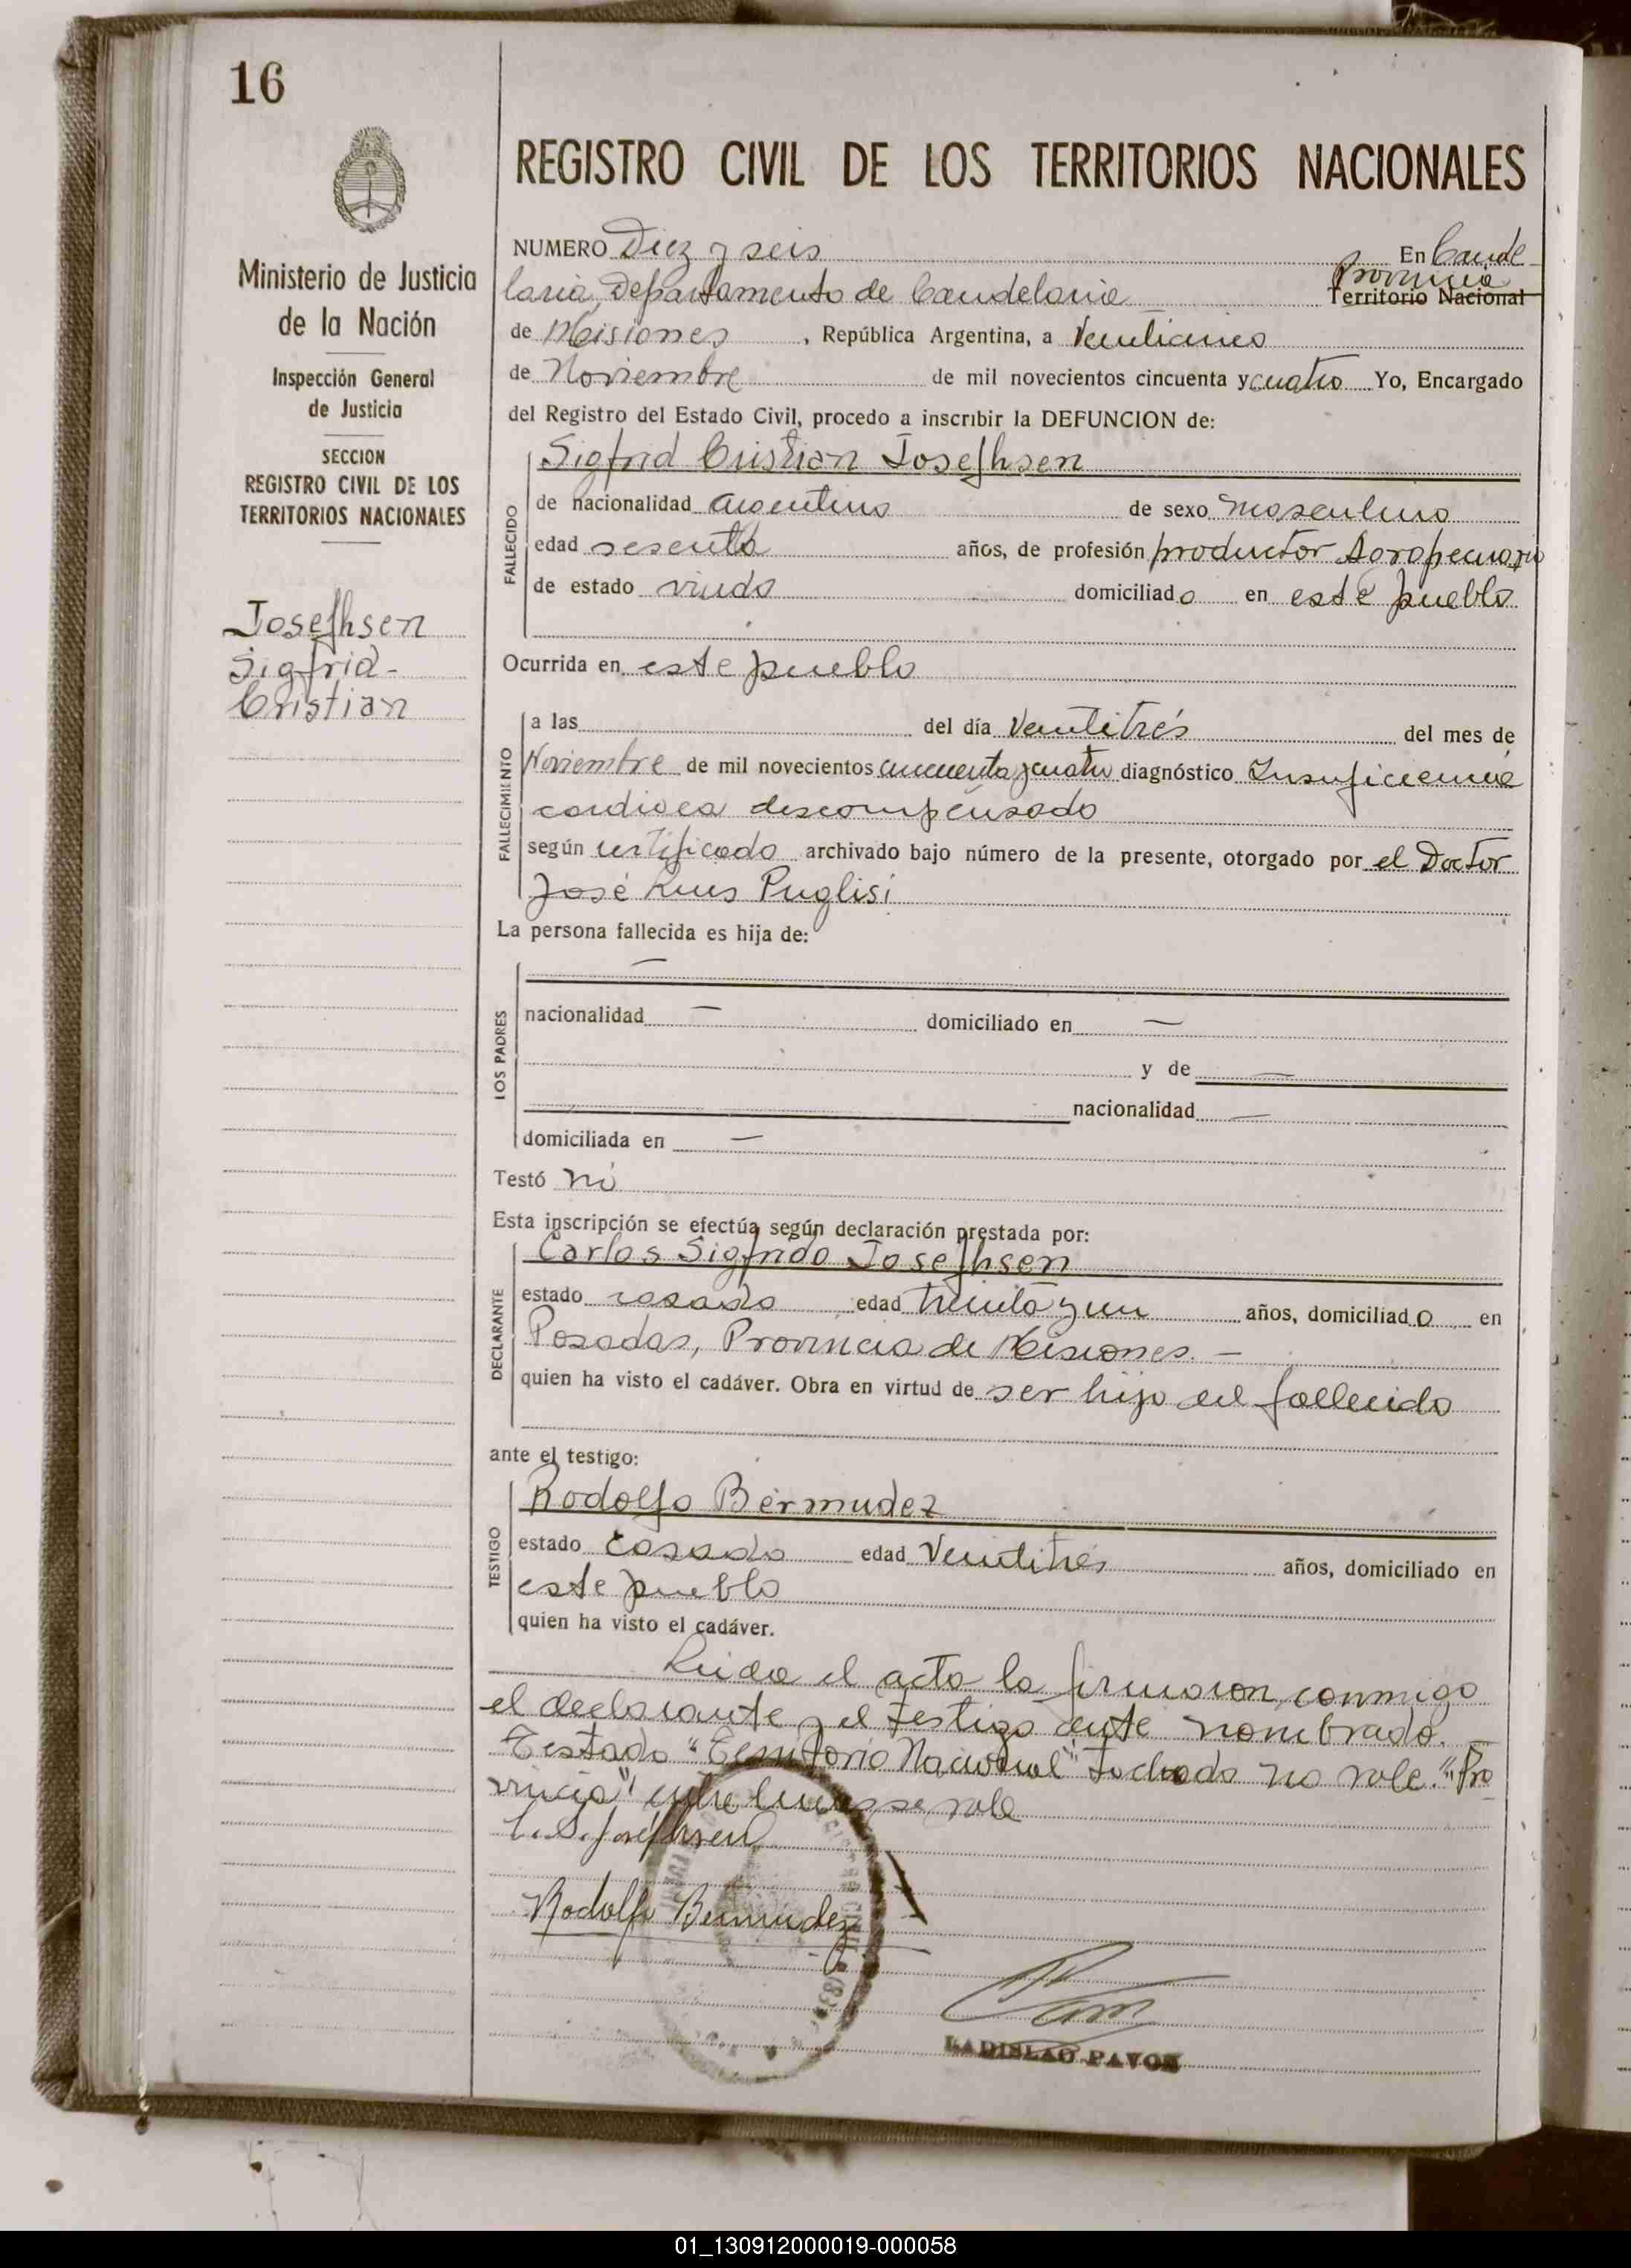 16
REGISTRO CIVIL DE LOS TERRITORIOS NACIONALES
Ministerio de Justicia
de la Nación
Inspección General
de Justicia
SECCION
REGISTRO CIVIL DE LOS
TERRITORIOS NACIONALES
Josephsen
Sigfrid-
Cristian
NUMERO Diez y seis En Cande-
laria, Departamento de Candelaria Provincia
Territorio Nacional
de Misiones, República Argentina, a
de Noviembre de mil novecientos cincuenta y cuatro Yo, Encargado
del Registro del Estado Civil, procedo a inscribir la DEFUNCION de:
Sigfrid Cristian Josephsen
FALLECIDO
de nacionalidad argentino de sexo masculino
edad sesenta años, de profesión productor Agropecuario
de estado viudo domiciliado en este pueblo
Ocurrida en este pueblo
FALLECIMIENTO
a las del día Veintitrés del mes de
Noviembre de mil novecientos cincuenta y cuatro diagnóstico Insuficiencia
cardiaca descompensada
según certificado archivado bajo número de la presente, otorgado por el Doctor
José Luis Puglisi
La persona fallecida es hija de:
LOS PADRES
—
nacionalidad — domiciliado en —
y de —
nacionalidad —
domiciliada en —
Testó no
Esta inscripción se efectúa según declaración prestada por:
DECLARANTE
Carlos Sigfrido Josephsen
estado casado edad treinta y un años, domiciliado en
Posadas, Provincia de Misiones. —
quien ha visto el cadáver. Obra en virtud de ser hijo del fallecido
ante el testigo:
TESTIGO
Rodolfo Bermudez
estado casado edad Veintitrés años, domiciliado en
este pueblo
quien ha visto el cadáver.
Leida el acta la firmaron conmigo
el declarante y el testigo ante nombrado.
Testado "Territorio Nacional" tachado no vale. "Pro
vincia" entre lineas se vale
C. S. Josephsen
Rodolfo Bermudez
LADISLAO PAVON
01_130912000019-000058